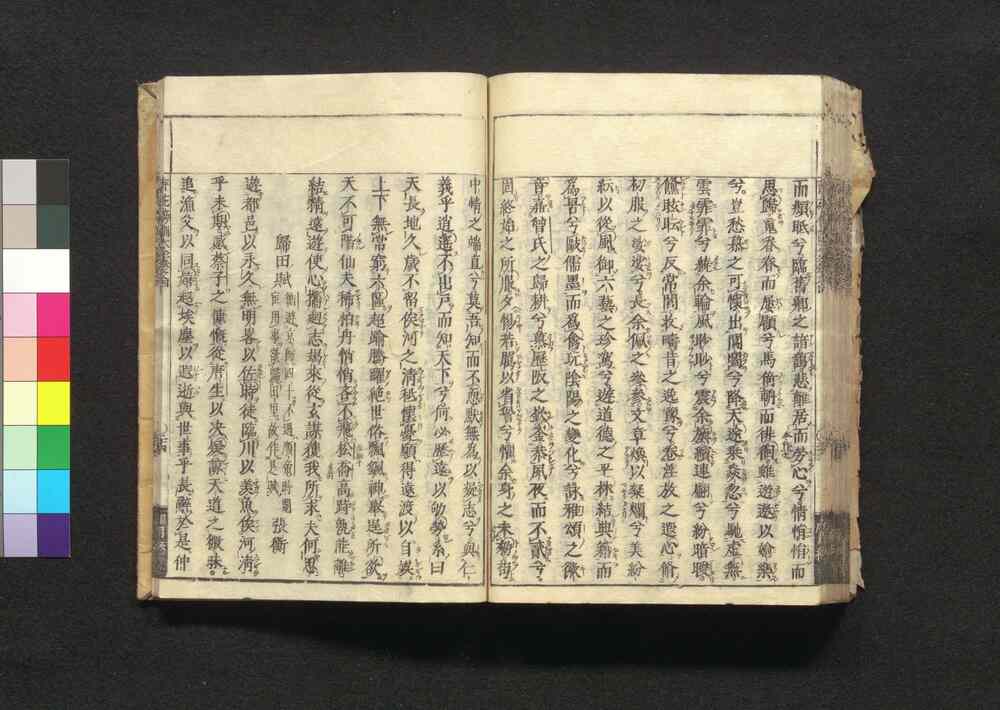 而顧眂兮臨舊郷之諳藹悲離居而勞心兮情悁悁而
思歸寬眷眷而屢顧兮馬倚輈而徘徊雖遊遨以媮樂
兮豈愁慕之可懷出閶闔兮降天途乗焱忽兮馳虛無
雲霏霏兮繞余輪風眇眇兮震余旟繽連翩兮紛暗曖
儵眩眃兮反常閭收疇昔之逸豫兮卷淫放之遐心脩
初服之娑娑兮長余佩之參參文章煥以粲爛兮美紛
紜以從風御六藝之珍駕兮遊道德之平林結典籍而
為罟兮敺儒墨而為禽玩陰陽之變化兮詠雅頌之徽
音嘉曾氏之歸耕兮慕歷阪之嶔崟恭夙夜而不貳兮
固終始之所服夕惕若厲以省諐兮懼余身之未勑苟
中情之端直兮莫吾知而不恧默無為以凝志兮與仁
義乎逍遙不出戸而知天下兮何必歷遠以劬勞系曰
天長地久歲不留俟河之清祇懷憂願得遠渡以自娛
上下無常窮六區超踰騰躍絕世俗飄颻神舉逞所欲
天不可階仙夫稀柏舟悄悄吝不飛松喬高跱孰能離
結精遠遊使心攜廻志朅來從玄謀獲我所求夫何思
歸田賦 張衡
遊都邑以永久無明畧以佐時徒臨川以羨魚俟河清
乎未期感蔡子之慷慨從唐生以决疑諒天道之微昧
追漁父以同嬉超埃塵以遐逝與世事乎長辭於是仲